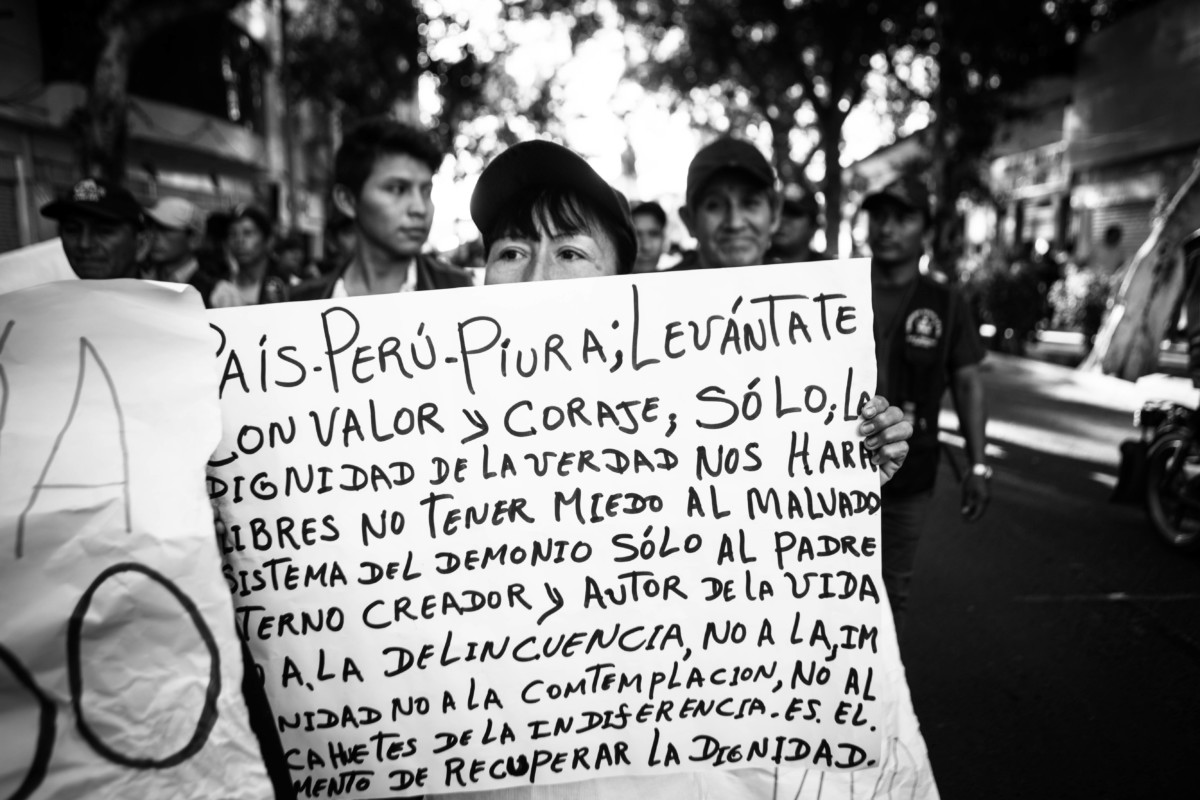 PAÍS-PERÚ-PIURA; LEVÁNTATE
CON VALOR Y CORAJE; SÓLO; LA
DIGNIDAD DE LA VERDAD NOS HARA
LIBRES NO TENER MIEDO AL MALVADO
SISTEMA DEL DEMONIO SÓLO AL PADRE
TERNO CREADOR Y AUTOR DE LA VIDA
A.LA DELINCUENCIA, NO A LA, IM
NIDAD NO A LA COMTEMPLACION, NO AL
CAHUETES DE LA INDIFERENCIA. ES. EL.
MENTO DE RECUPERAR LA DIGNIDAD.
A
O